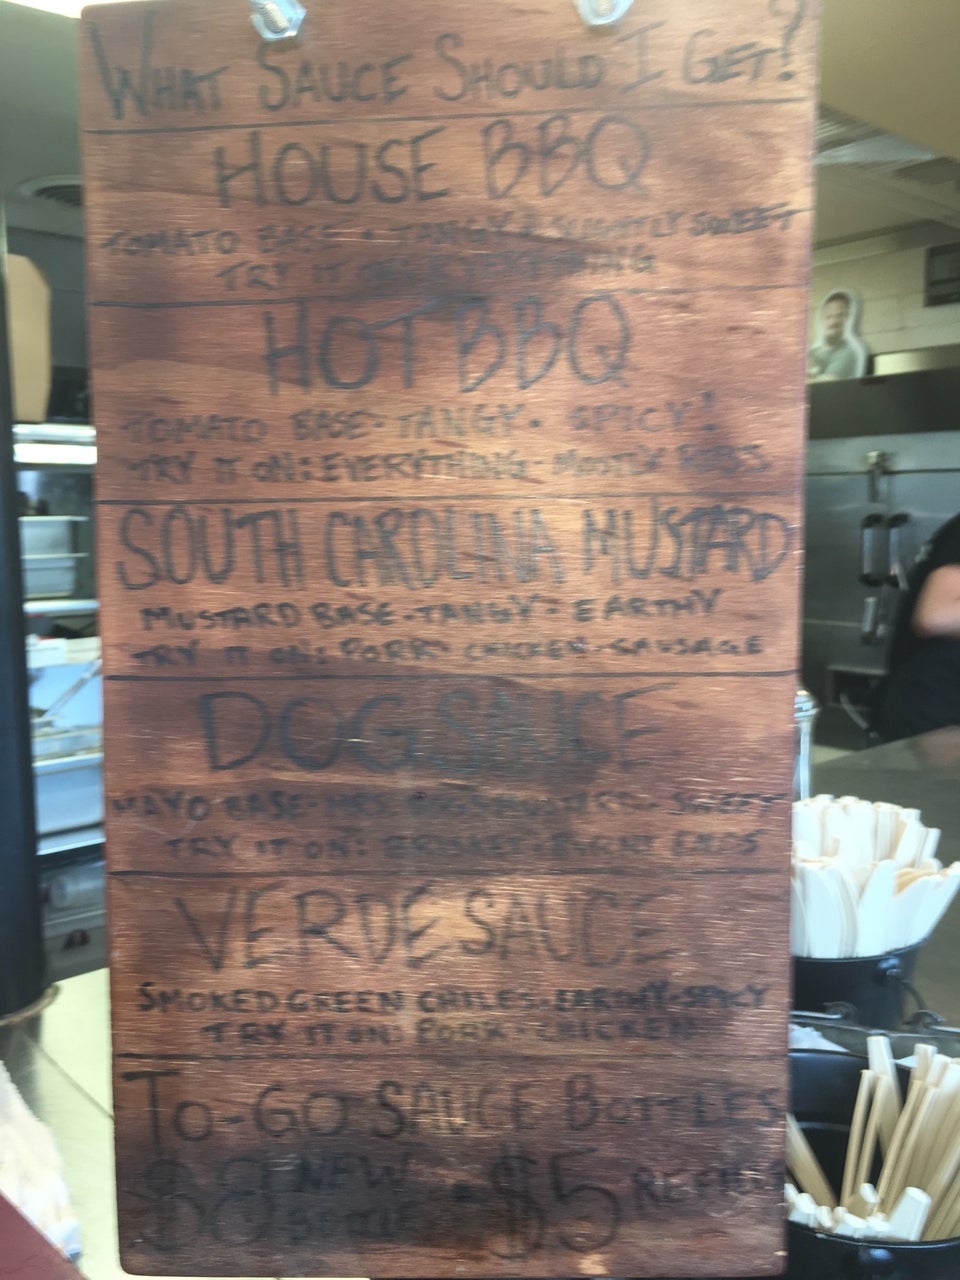 WHAT SAUCE SHOULD I GET?
HOUSE BBQ
TOMATO BASE • TANGY & SLIGHTLY SWEET
TRY IT
HOT BBQ
TOMATO BASE • TANGY • SPICY!
TRY IT ON: EVERYTHING MOSTLY RIBS
SOUTH CAROLINA MUSTARD
MUSTARD BASE • TANGY • EARTHY
TRY IT ON: PORK CHICKEN • SAUSAGE
DOG SAUCE
MAYO BASE SWEET
TRY IT ON: BRISKET • BURNT ENDS
VERDE SAUCE
SMOKED GREEN CHILES • EARTHY • SPICY
TRY IT ON: PORK • CHICKEN
TO-GO SAUCE BOTTLES
$8 NEW BOTTLE - $5 REFILL